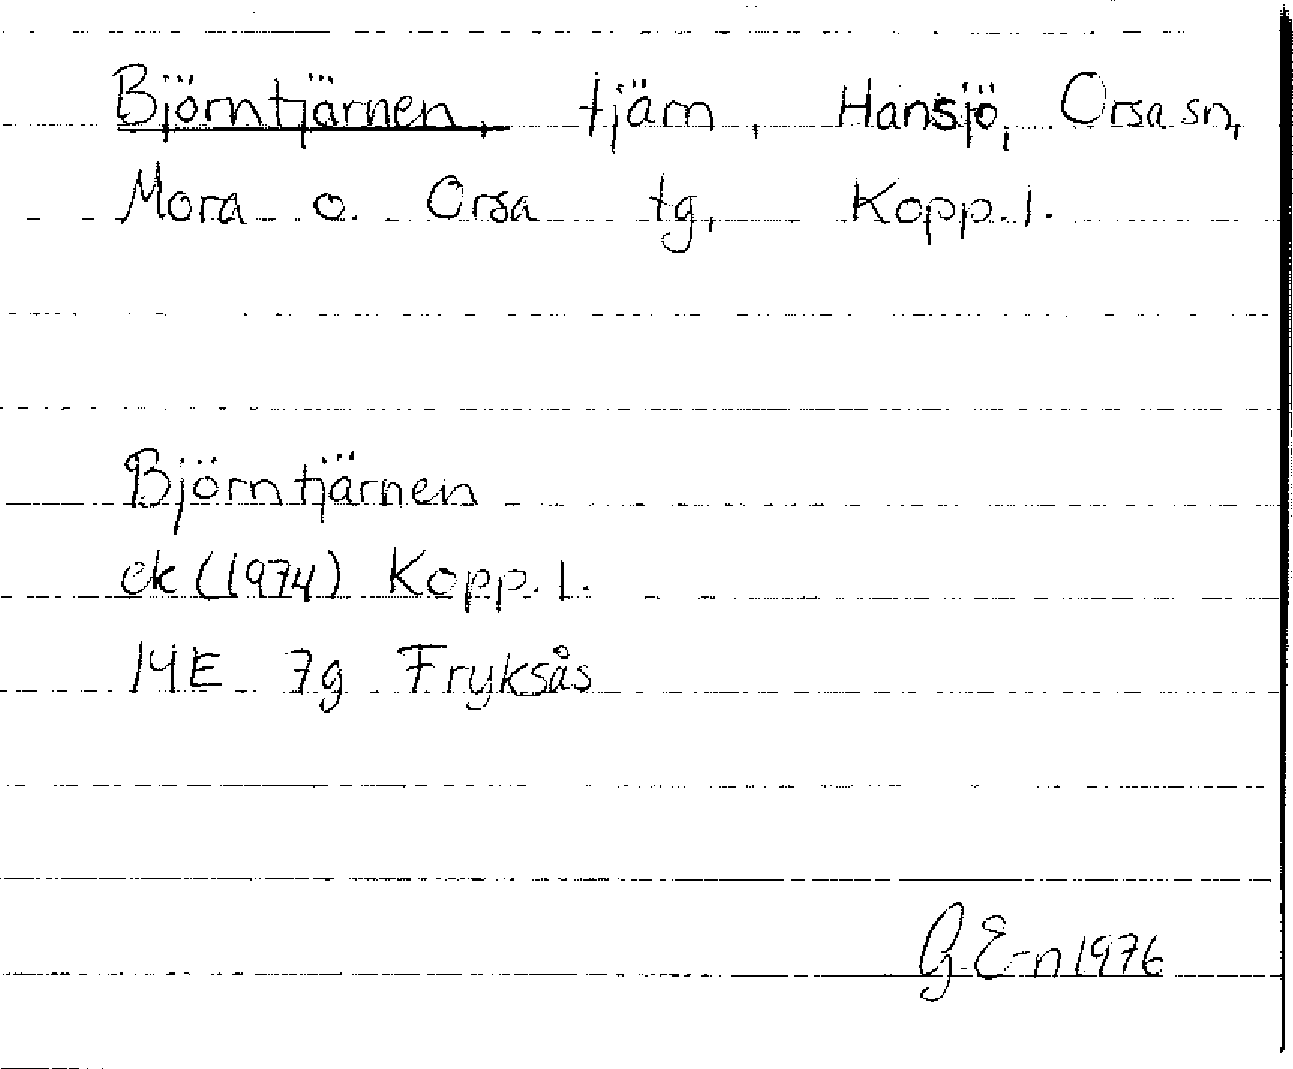 Björntjärnen, tjärn, Hansjö, Orsa sn,
Mora o. Orsa tg, Kopp. l.
Björntjärnen
ek (1974) Kopp. l.
14E 7g Fryksås
G E-n 1976